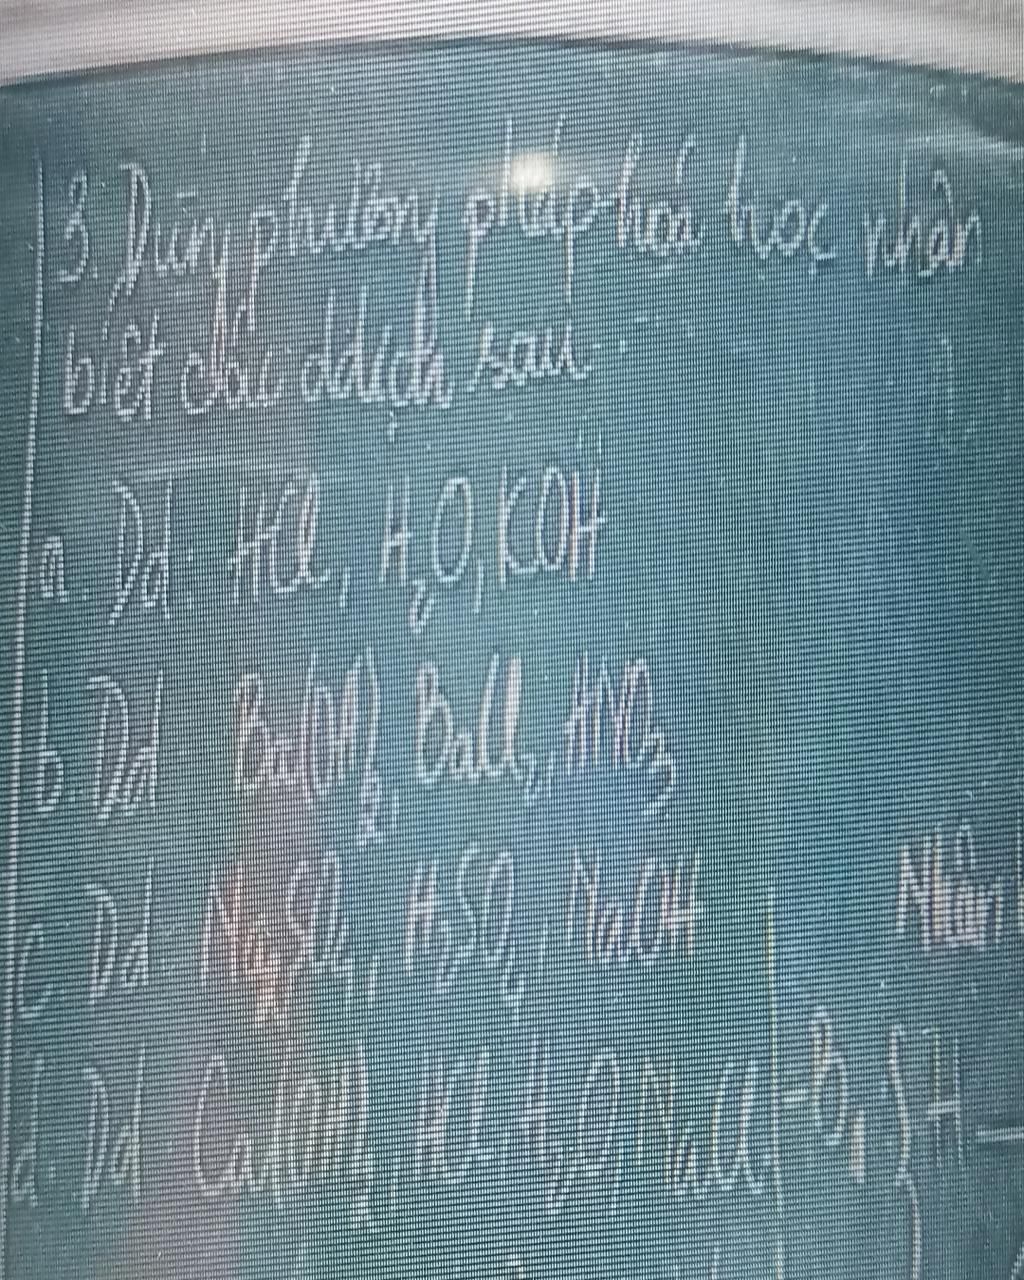 3. Dùng phương pháp hoá học nhận
biết các ddịch sau
a. Dd: HCl, H₂O, KOH
b. Dd Ba(OH)₂, BaCl₂, HNO₃
c. Dd Na₂SO₄, H₂SO₄, NaOH
d. Dd Ca(OH)₂ HCl H₂O, NaCl
Nhận